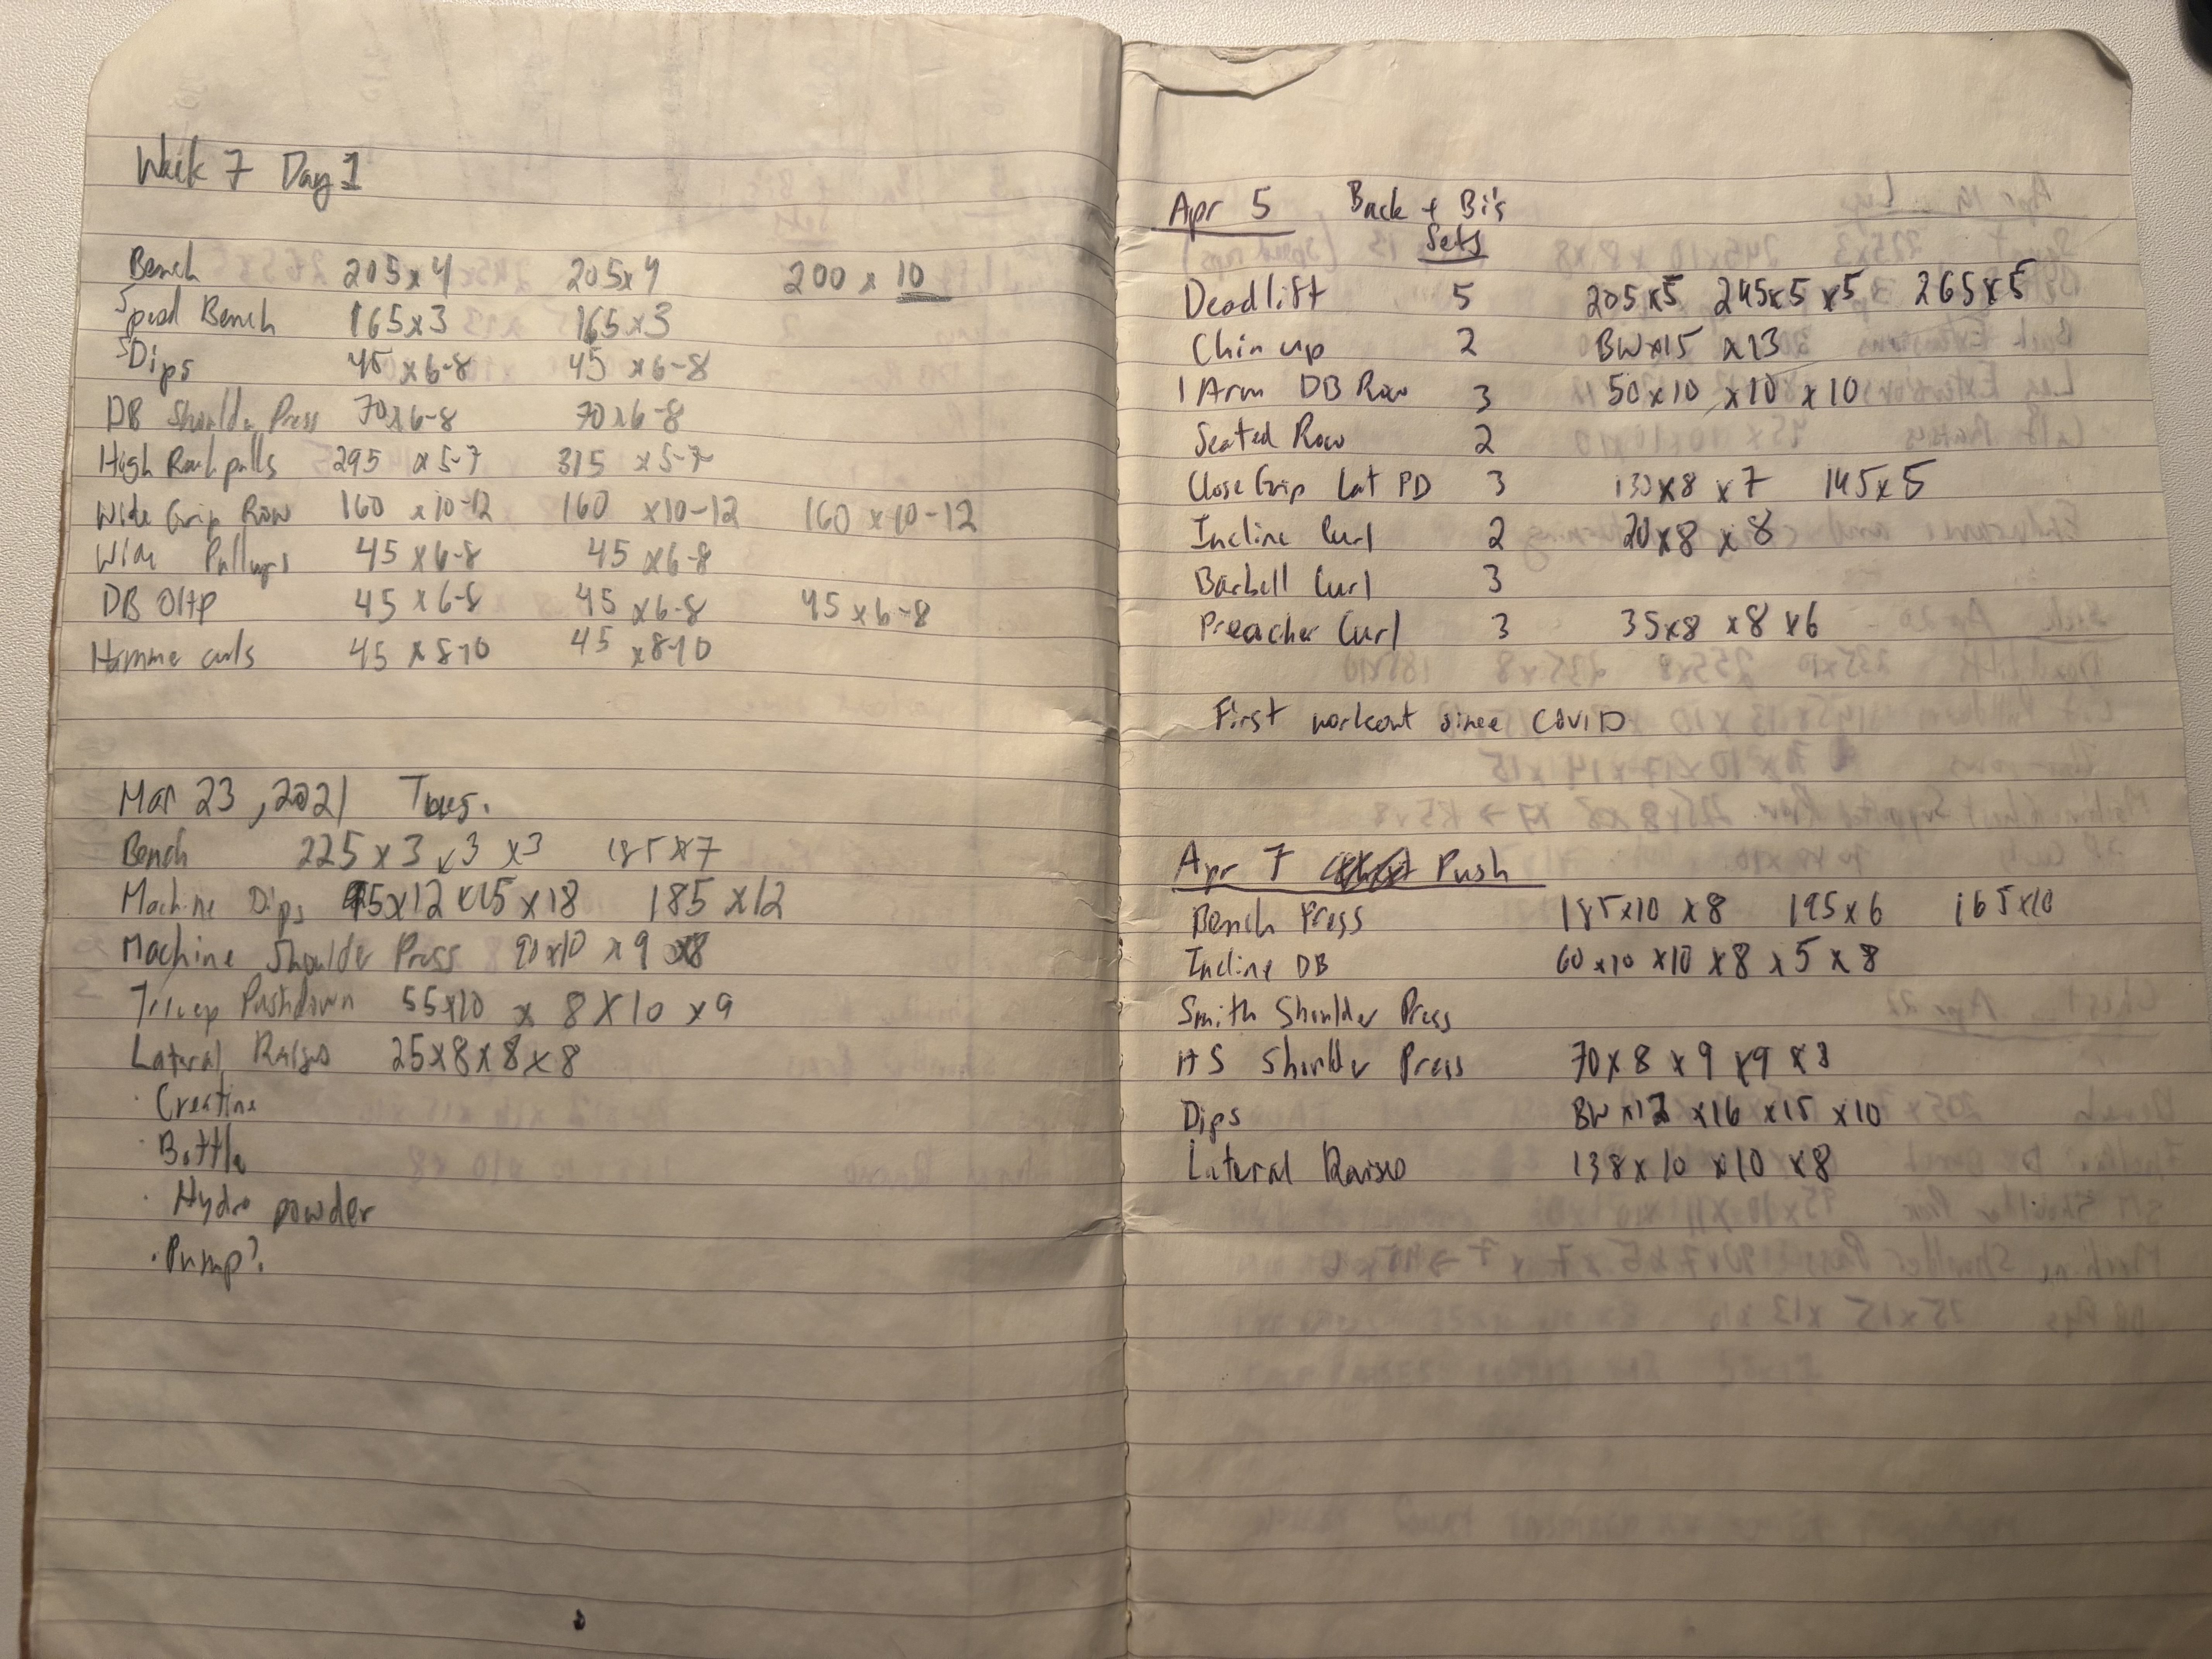 Week 7 Day 1
Bench 205x4 205x4 200 x 10
Speed Bench 165x3 165x3
Dips 45 x6-8 45 x6-8
DB Shoulder Press 70x6-8 70x6-8
High Rack pulls 295 x5-7 315 x5-7
Wide Grip Row 160 x10-12 160 x10-12 160 x10-12
Wide Pullups 45 x6-8 45 x6-8
DB OHP 45 x6-8 45 x6-8 45 x6-8
Hamme curls 45 x8-10 45 x8-10
Mar 23, 2021 Tues.
Bench 225 x 3 x3 x3 185x7
Machine Dips 95x12 x15 x18 185 x12
Machine Shoulder Press 90x10 x9 x8
Tricep Pushdown 55x10 x 8 x10 x9
Lateral Raises 25x8x8x8
· Creatine
· Bottle
· Hydro powder
· Pump?
Apr 5 Back + Bi's
Sets
Deadlift 5 205x5 245x5 x5 265x5
Chin up 2 BWx15 x13
1 Arm DB Row 3 50x10 x10 x10
Seated Row 2
Close Grip Lat PD 3 130x8 x7 145x5
Incline Curl 2 20x8 x8
Barbell Curl 3
Preacher Curl 3 35x8 x8 x6
First workout since COVID
Apr 7 Push
Bench Press 185x10 x8 195x6 165x10
Incline DB 60x10 x10 x8 x5 x8
Smith Shoulder Press
HS Shoulder Press 70x8 x9 x9 x8
Dips BW x12 x16 x15 x10
Lateral Raises 138x10 x10 x8